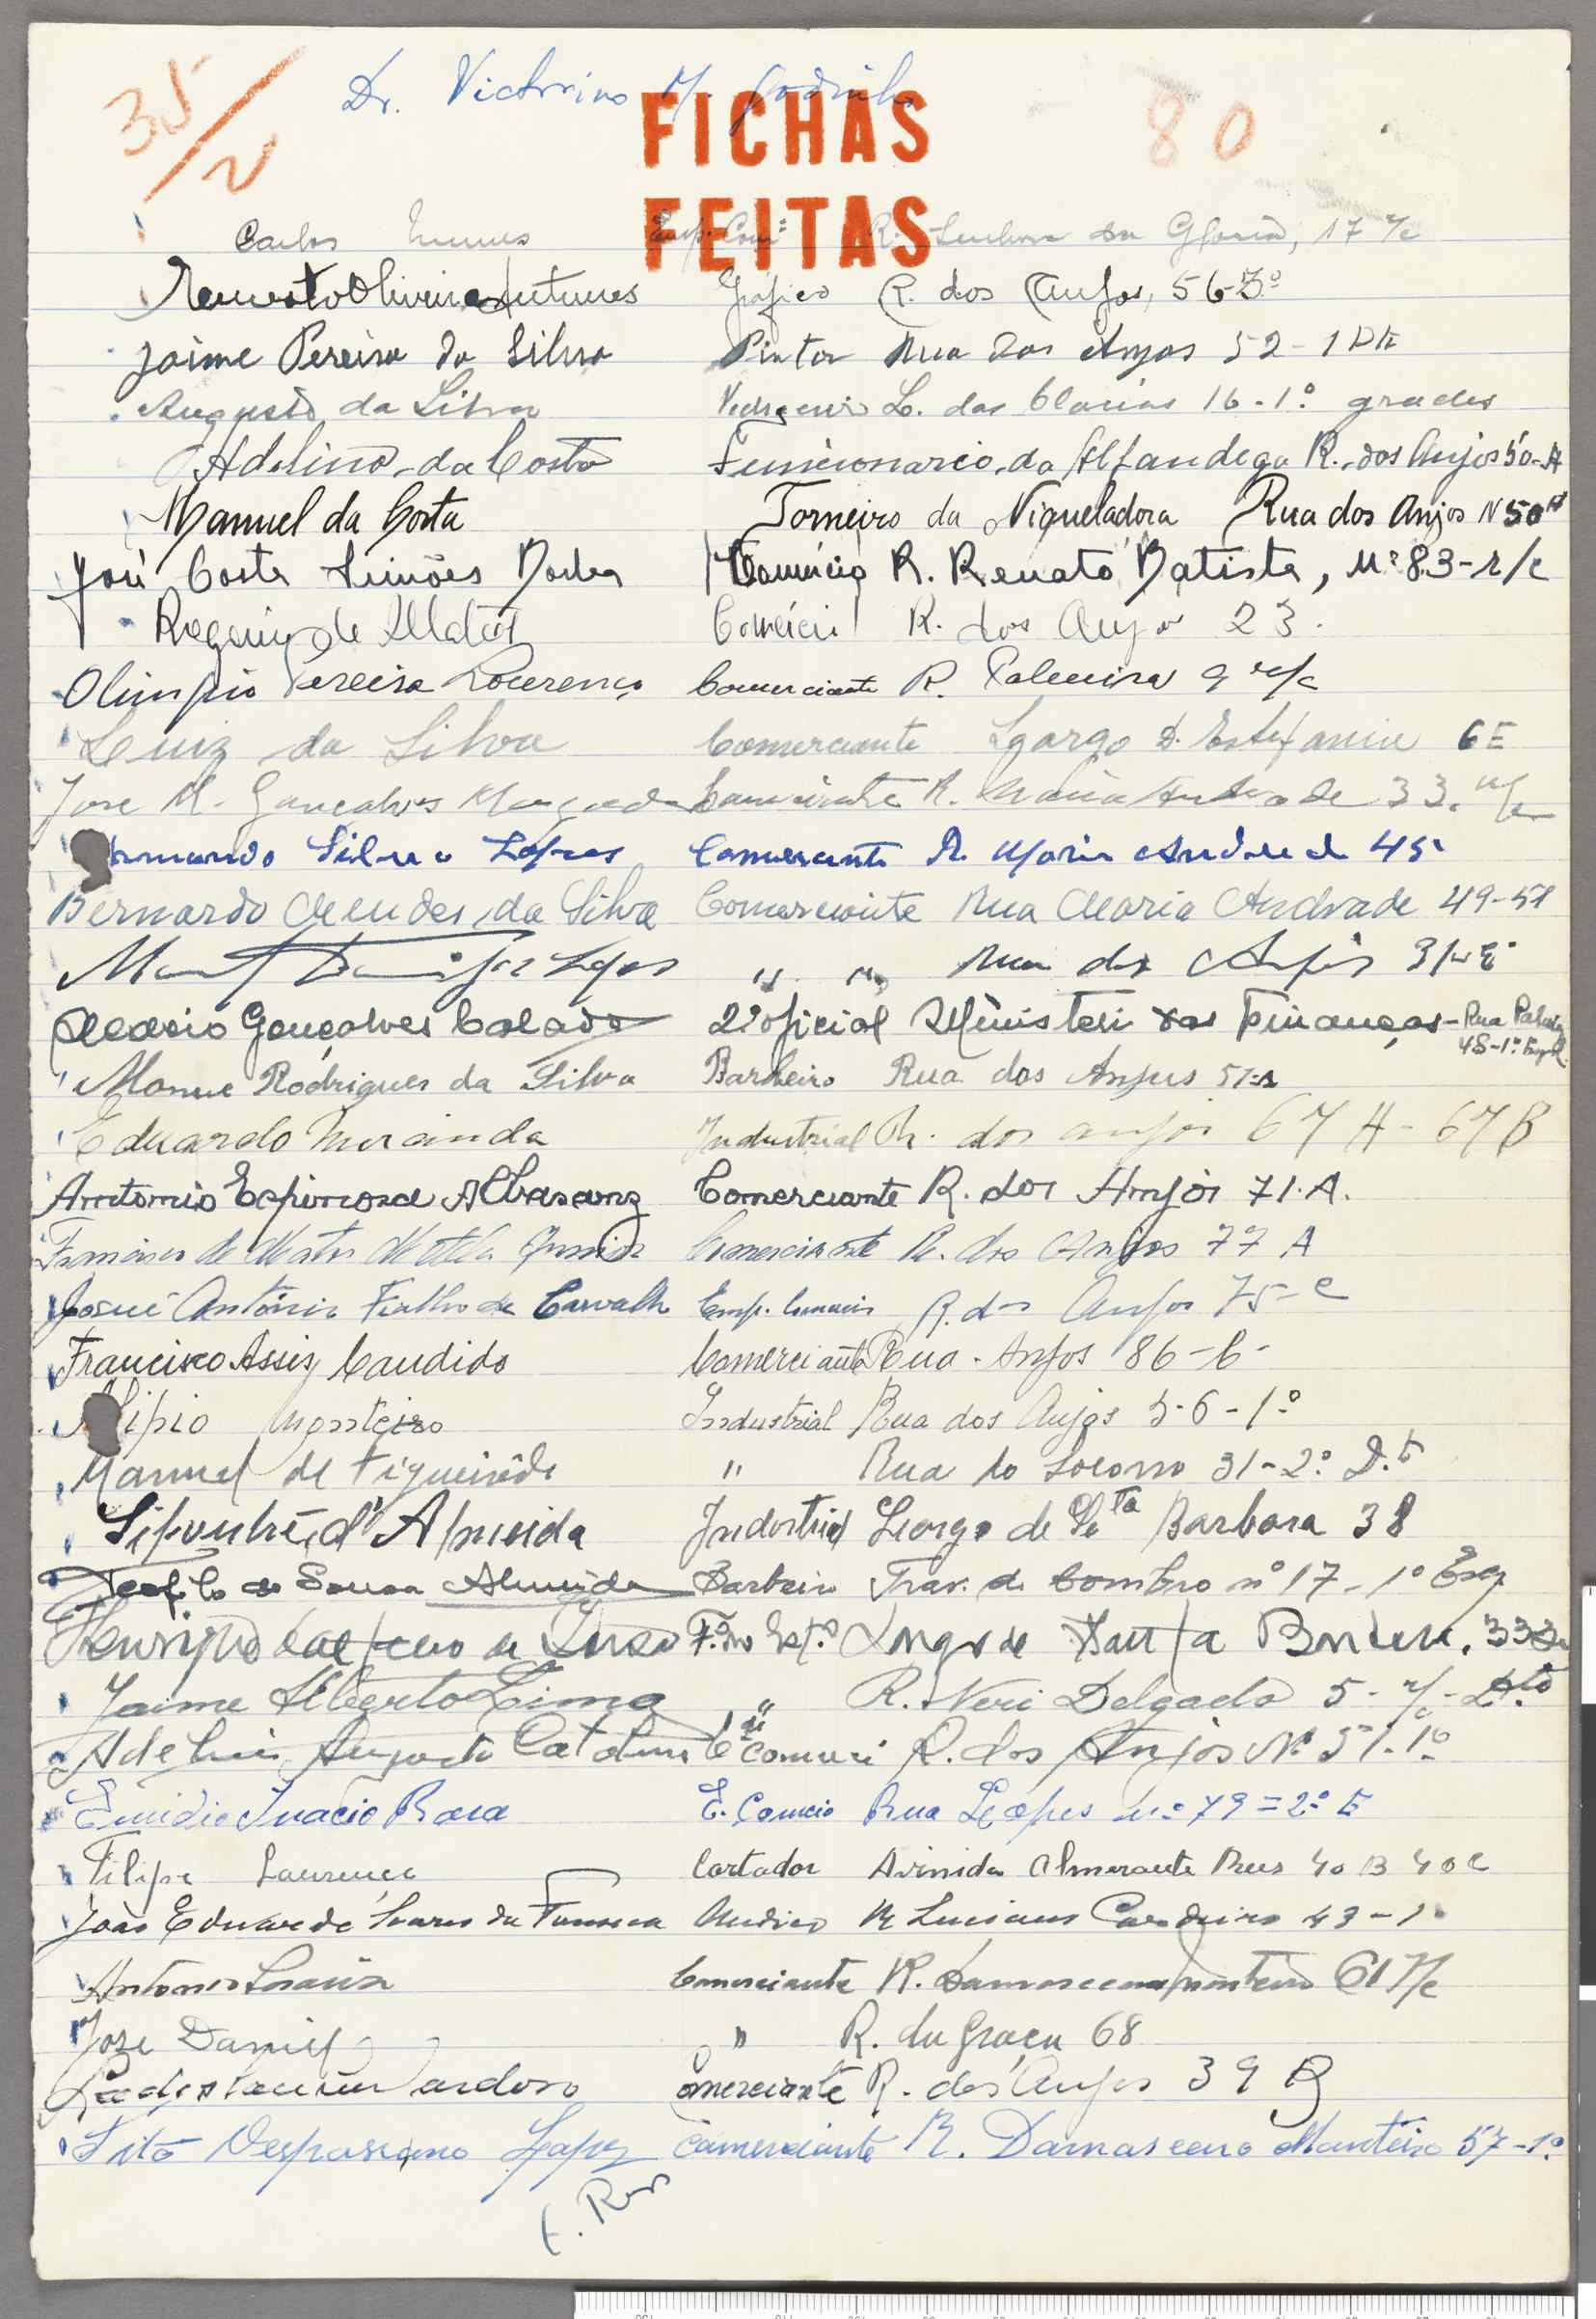 35/2
Dr. Victorino M. Godinho
80
FICHAS
FEITAS
Carlos Nunes Emp. Com. R. Senhora da Gloria, 17 r/c
Oliveira Antunes Gráfico R. dos Anjos, 56-3º
Jaime Pereira da Silva Pintor Rua dos Anjos 52-1 Dtº
Augusto da Silva L. das Olarias 16-1º
Adelino da Costa Funcionario da Alfandega R. dos Anjos 50-A
Manuel da Costa Torneiro da Niqueladora Rua dos Anjos Nº 50 A
José Costa Simões Comércio R. Renato Batista, Nº 83-r/c
de Matos Comércio R. dos Anjos 23.
Olimpio Pereira Lourenço Comerciante R. Palmira 9 r/c
Luiz da Silva Comerciante Lgargo D. Estefania 6 E
Jose M. Gonçalves Comerciante R. Maria Andrade 33. r/c
Armando Silva Lopes Comerciante R. Maria Andrade 45
Bernardo Mendes da Silva Comerciante Rua Maria Andrade 49-51
Lopes " " Rua dos Anjos
Gonçalves Calado 2º oficial Ministeri das Finanças - Rua
48-1º Esq.
Manue Rodrigues da Silva Barbeiro Rua dos Anjos 51-A
Eduardo Miranda Industrial R. dos anjos 67 A - 67 B
Antonio Espinosa Comerciante R. dos Anjos 71.A.
Francisco de Matos Junior Comerciante R. dos Anjos 77 A
Josué António Fialho de Carvalho Emp. Comercio R. dos Anjos 75-C
Francisco Assis Candido Comerciante Rua - Anjos 86-C-
Alipio Monteiro Industrial Rua dos Anjos 5-6-1º
Manuel de Figueirêdo " Rua do Socorro 31-2º D.to
d'Almeida Industrial Largo de Sta Barbara 38
Teofilo de Sousa Almeida Barbeiro Trav. do Combro nº 17-1º Esq
Henrique de F. no Est.º Largo de Santa Barbara,
Jaime Alberto Lima " R. Neri Delgado 5-r/c-Dto
Adelino Augusto R. dos Anjos Nº 51.1º
Emidio Inacio Rosa E. Comcio Rua Nº 79=2º E
Filipe Lourenço Cortador Avinida Almerante Reis 40 B 40 C
João Eduardo Soares da Fonseca Medico R Luciano Cordeiro 43-1º
Antonio Comerciante R. Damasceno Monteiro 61 r/c
Joze Daniel " R. da Graça 68
Ladislau Cardoso Comerciante R. dos Anjos 39 B
Tito Vespasiano Lopes Comerciante R. Damasceno Monteiro 57-1º